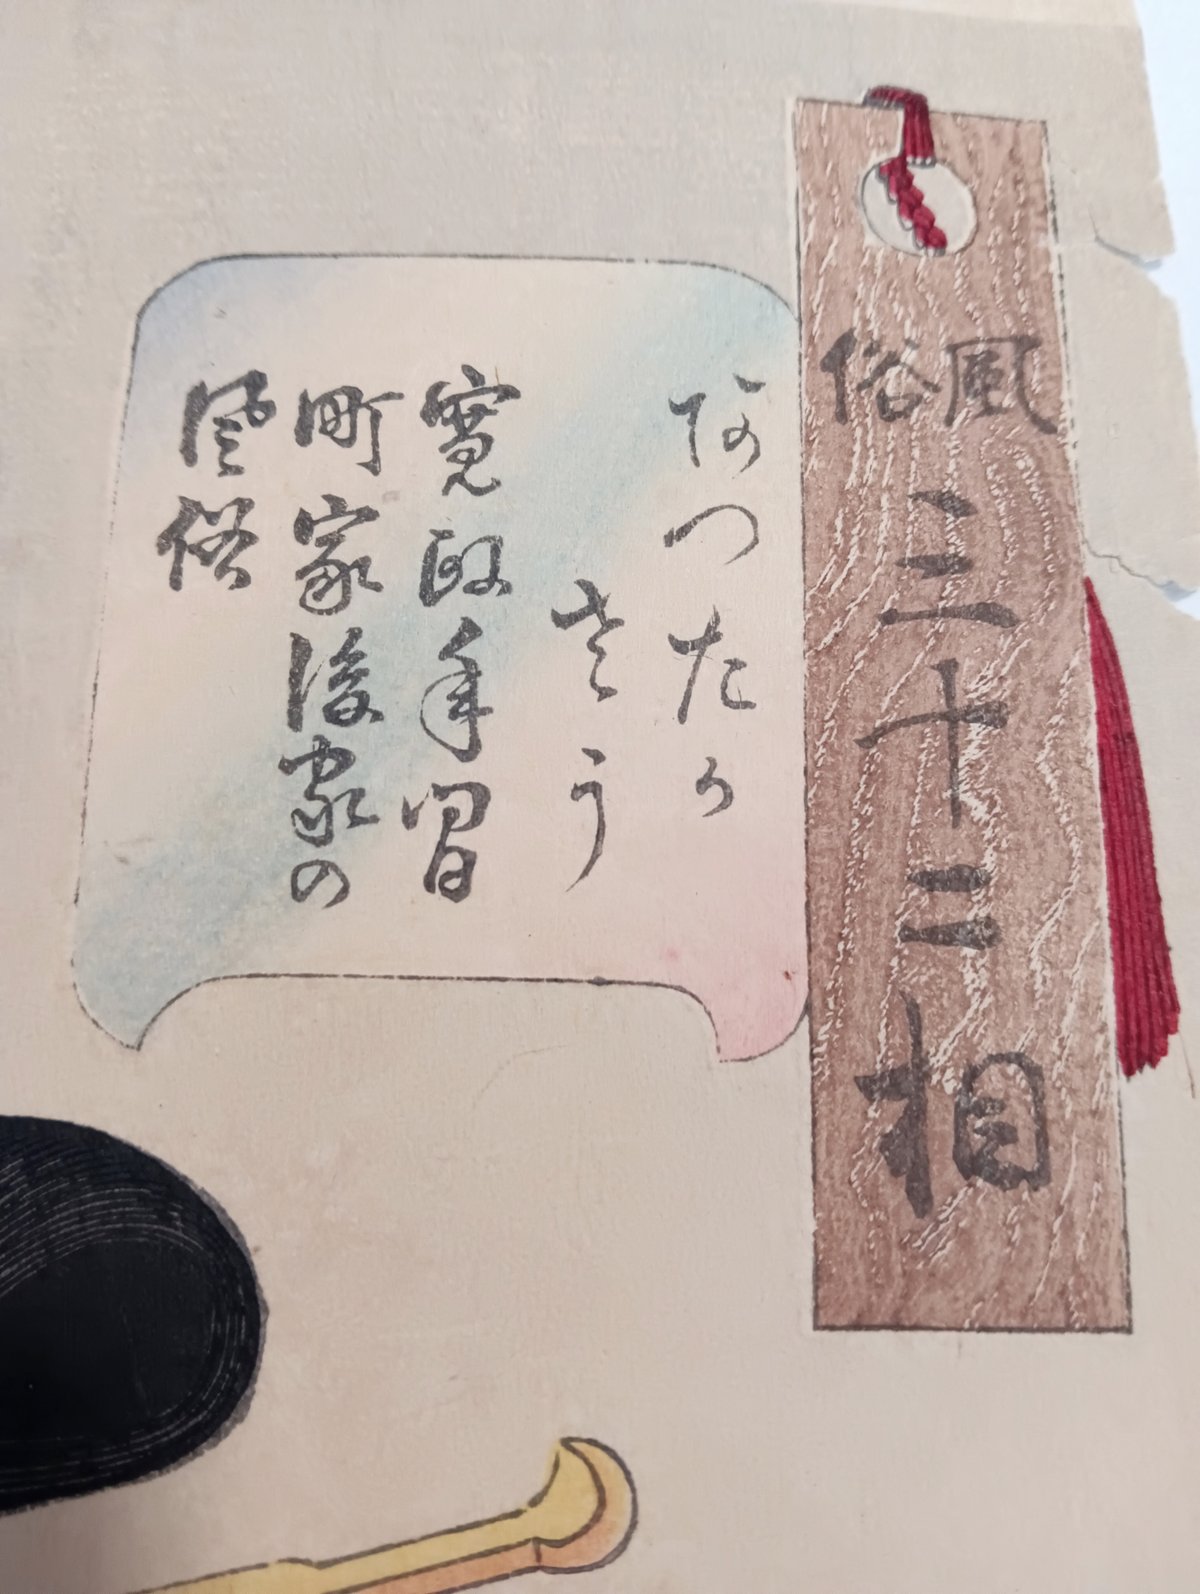 風俗三十二相
あつたか
さう
寛政年間
町家後家の
風俗